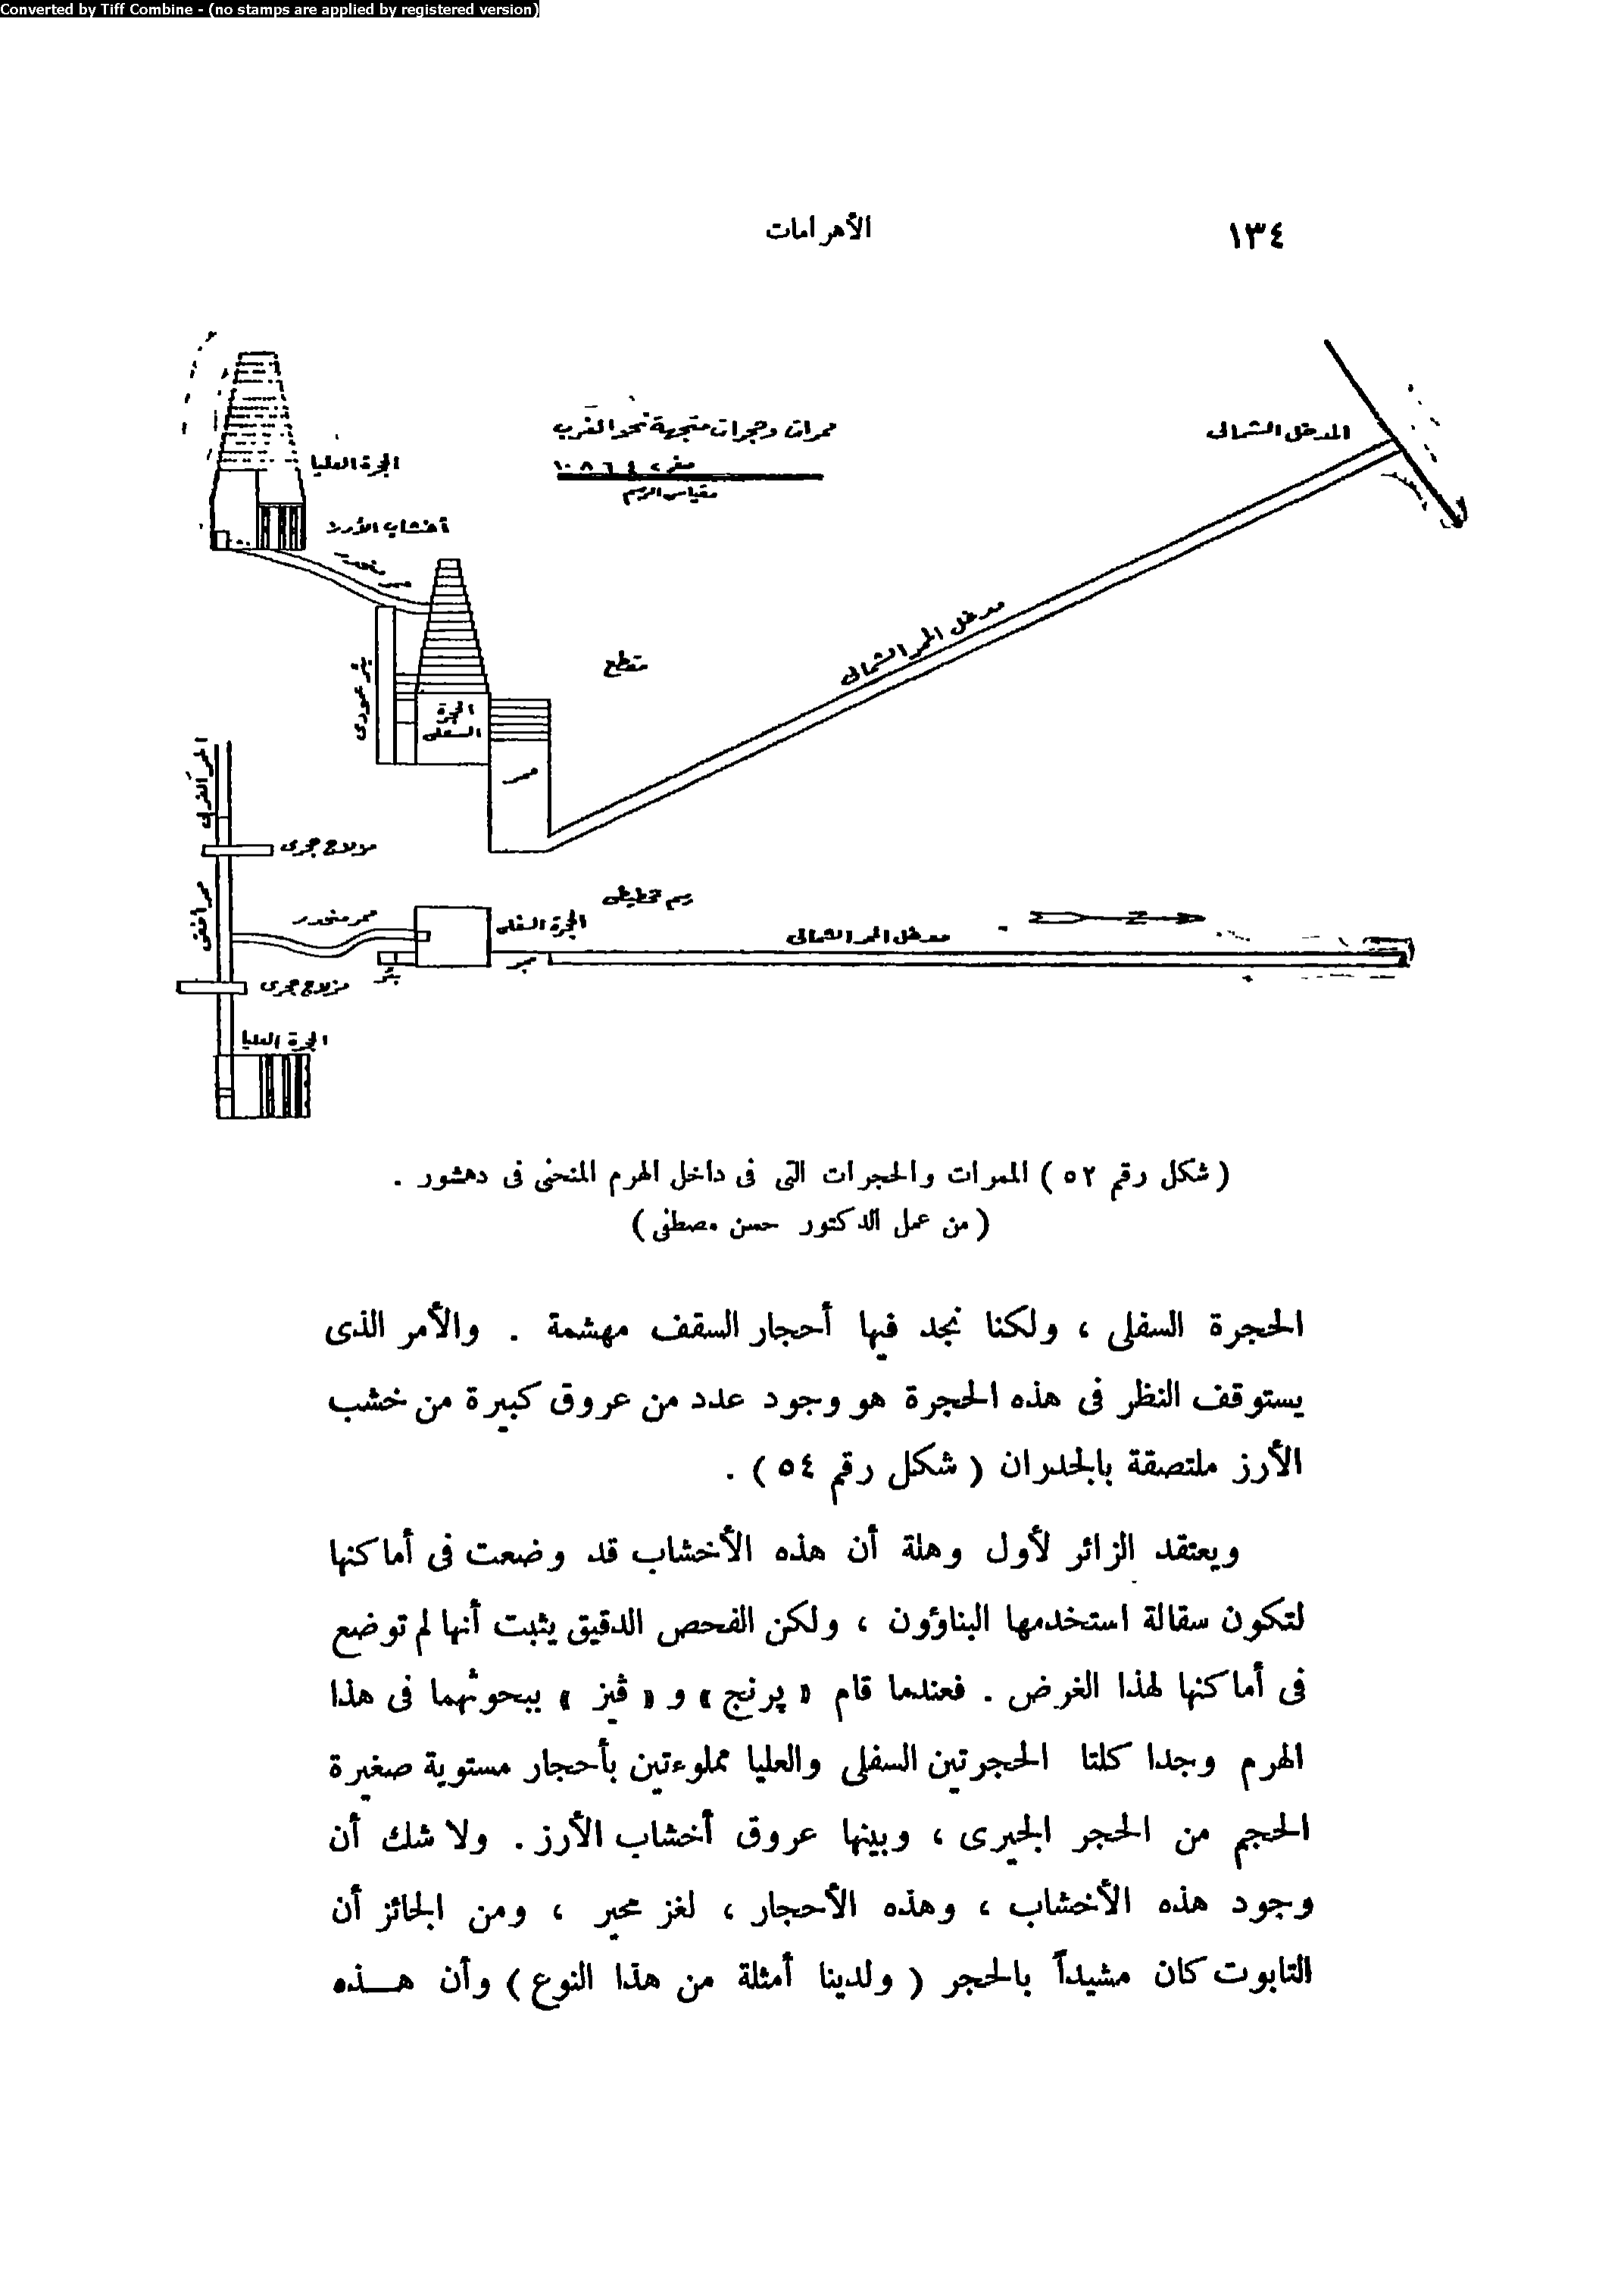 Converted by Tiff Combine - (no stamps are applied by registered version)
١٣٤
الأهرامات
المدخل الشمالى
ممرات وحجرات متجهة نحو الغرب
صفر ٢ ٤ ٦ ٨ ١٠
مقياس الرسم
الحجرة العليا
أخشاب الأرز
ممر منحدر
مدخل الممر الشمالى
مقطع
بئر عمودى
الحجرة
السفلى
ممر
الممر الغربى
مزلاج حجرى
رسم تخطيطى
ممر أفقى
ممر منحدر
الحجرة السفلى
مدخل الممر الشمالى
ممر
بئر
مزلاج حجرى
الحجرة العليا
( شكل رقم ٥٢ ) الممرات والحجرات التى فى داخل الهرم المنحنى فى دهشور .
( من عمل الدكتور حسن مصطفى )
الحجرة السفلى ، ولكنا نجد فيها أحجار السقف مهشمة . والأمر الذى
يستوقف النظر فى هذه الحجرة هو وجود عدد من عروق كبيرة من خشب
الأرز ملتصقة بالجدران ( شكل رقم ٥٤ ) .
ويعتقد الزائر لأول وهلة أن هذه الأخشاب قد وضعت فى أماكنها
لتكون سقالة استخدمها البناؤون ، ولكن الفحص الدقيق يثبت أنها لم توضع
فى أماكنها لهذا الغرض . فعندما قام « پرنج » و « ڤيز » ببحوثهما فى هذا
الهرم وجدا كلتا الحجرتين السفلى والعليا مملوءتين بأحجار مستوية صغيرة
الحجم من الحجر الجيرى ، وبينها عروق أخشاب الأرز . ولا شك أن
وجود هذه الأخشاب ، وهذه الأحجار ، لغز محير ، ومن الجائز أن
التابوت كان مشيداً بالحجر ( ولدينا أمثلة من هذا النوع ) وأن هـــذه